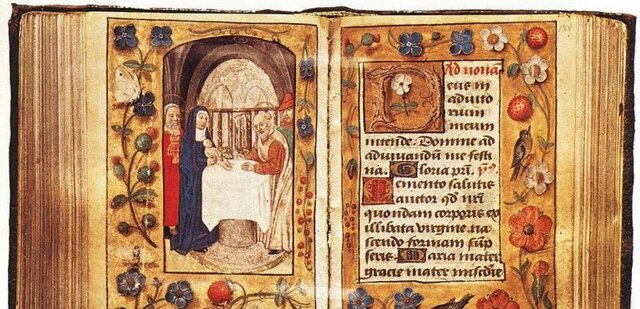 Ad nona
eus in
adiuto
rium
meum
intende. Domine ad
adiuuandū me festi
na. Gloria
Memento salutis
auctor qd nr̄i
quondam corporis ex
illibata virgine na
scendo formam sūp
seris. Maria mater
gracie mater mise